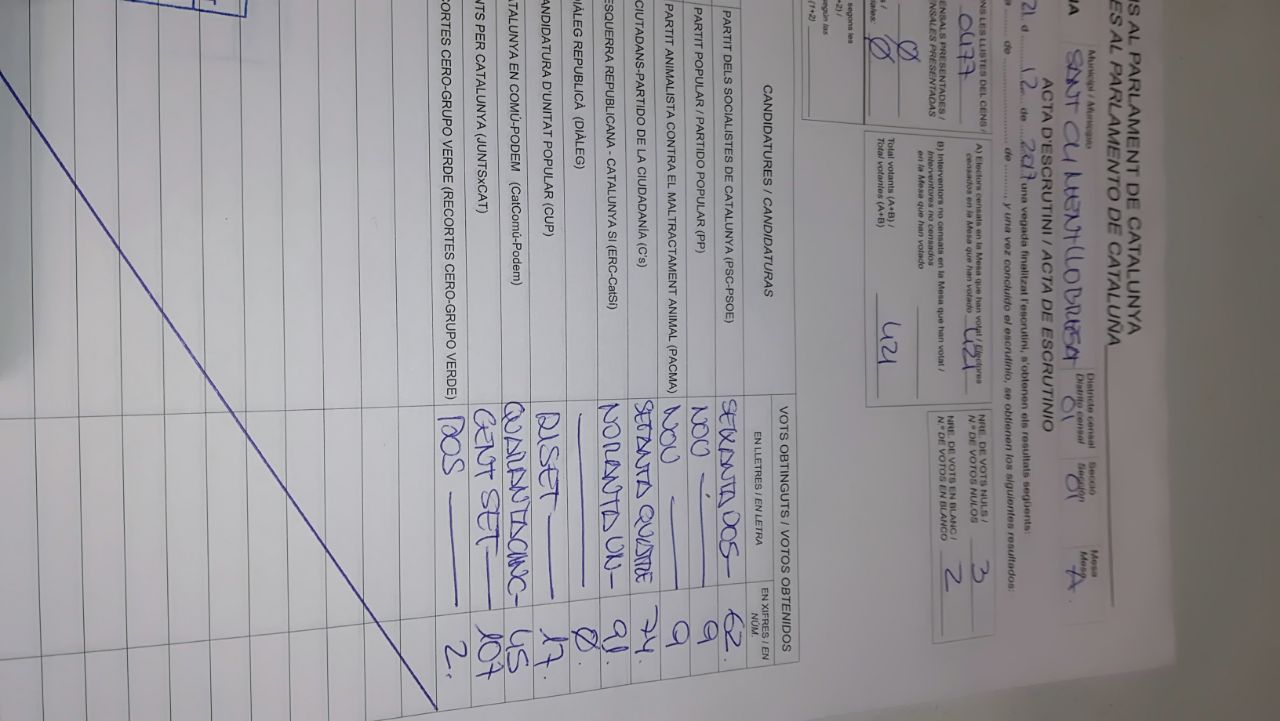 NS AL PARLAMENT DE CATALUNYA
ES AL PARLAMENTO DE CATALUÑA
Municipi / Municipio
SANT CLIMENT LLOBREGAT
Districte censal
Distrito censal
01
Secció
Sección
01
Mesa
Mesa
A
ACTA D'ESCRUTINI / ACTA DE ESCRUTINIO
21 d 12 de 2017 una vegada finalitzat l'escrutini, s'obtenen els resultats següents:
de de , y una vez concluido el escrutinio, se obtienen los siguientes resultados:
NS LES LLISTES DEL CENS /
0477
ENSALS PRESENTADES /
ENSALES PRESENTADAS
0
0
segons les
(1+2)
A) Electors censats en la Mesa que han votat / Electores
censados en la Mesa que han votado 421
B) Interventors no censats en la Mesa que han votat /
Interventores no censados
en la Mesa que han votado
Total votants (A+B) /
Total votantes (A+B) 421
NRE. DE VOTS NULS /
N.º DE VOTOS NULOS 3
NRE. DE VOTS EN BLANC /
N.º DE VOTOS EN BLANCO 2
CANDIDATURES / CANDIDATURAS
VOTS OBTINGUTS / VOTOS OBTENIDOS
EN LLETRES / EN LETRA
EN XIFRES / EN NÚM.
PARTIT DELS SOCIALISTES DE CATALUNYA (PSC-PSOE) SEIXANTA DOS 62
PARTIT POPULAR / PARTIDO POPULAR (PP) NOU 9
PARTIT ANIMALISTA CONTRA EL MALTRACTAMENT ANIMAL (PACMA) NOU 9
CIUTADANS-PARTIDO DE LA CIUDADANÍA (C's) SETANTA QUATRE 74.
ESQUERRA REPUBLICANA - CATALUNYA SÍ (ERC-CatSí) NORANTA UN 91.
DIÀLEG REPUBLICÀ (DIÀLEG) 0.
ANDIDATURA D'UNITAT POPULAR (CUP) DISET 17.
ATALUNYA EN COMÚ-PODEM (CatComú-Podem) QUARANTA CINC 45
NTS PER CATALUNYA (JUNTSxCAT) CENT SET 107
CORTES CERO-GRUPO VERDE (RECORTES CERO-GRUPO VERDE) DOS 2.